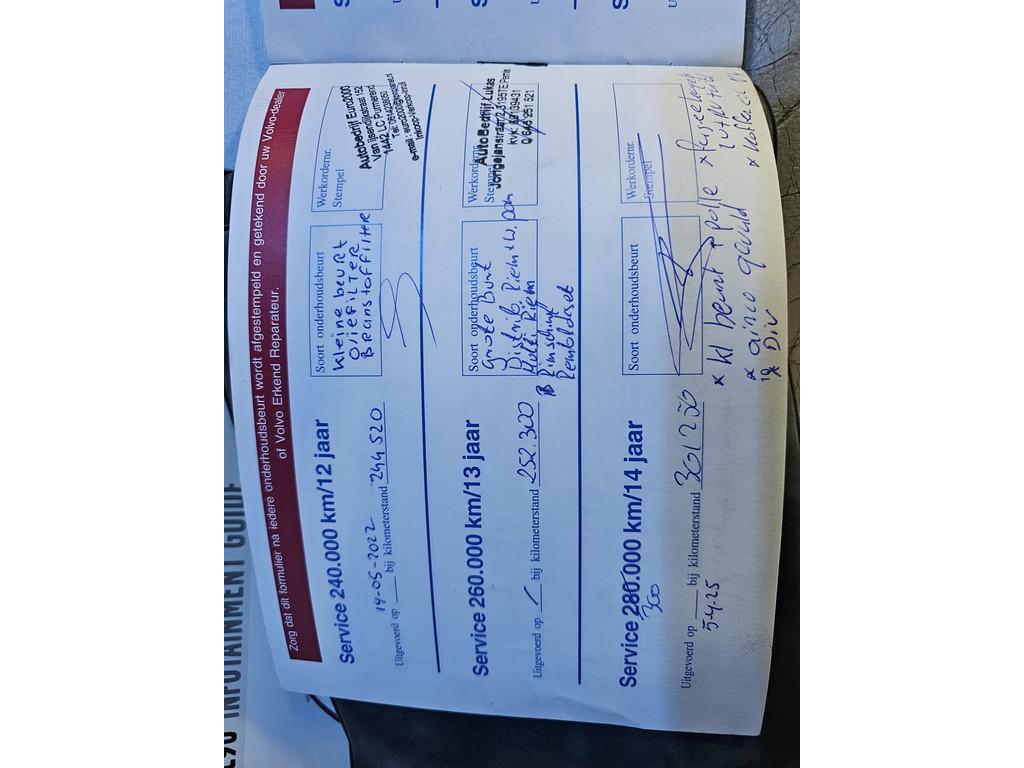 Zorg dat dit formulier na iedere onderhoudsbeurt wordt afgestempeld en getekend door uw Volvo-dealer
of Volvo Erkend Reparateur.
Service 240.000 km/12 jaar
14-05-2022
Uitgevoerd op ___ bij kilometerstand 244520
Soort onderhoudsbeurt
Kleine beurt
Oliefilter
Branstoffilter
Werkordernr.
Stempel
Autobedrijf Euro2000
Van IJsendijkstraat 152
1442 LC Purmerend
Service 260.000 km/13 jaar
Uitgevoerd op ___ bij kilometerstand 252.300
Soort onderhoudsbeurt
Grote Burt
Distrib. Riem + W. pom
Multi Riem
Werkordernr.
Stempel
Auto Bedrijf Lukas
Service 280.000 km/14 jaar
300
Uitgevoerd op ___ bij kilometerstand 301250
5-4-25
Soort onderhoudsbeurt
Werkordernr.
Stempel
* kl beurt + pollle
* airco gevuld
* Div
INFOTAINMENT GUIDE